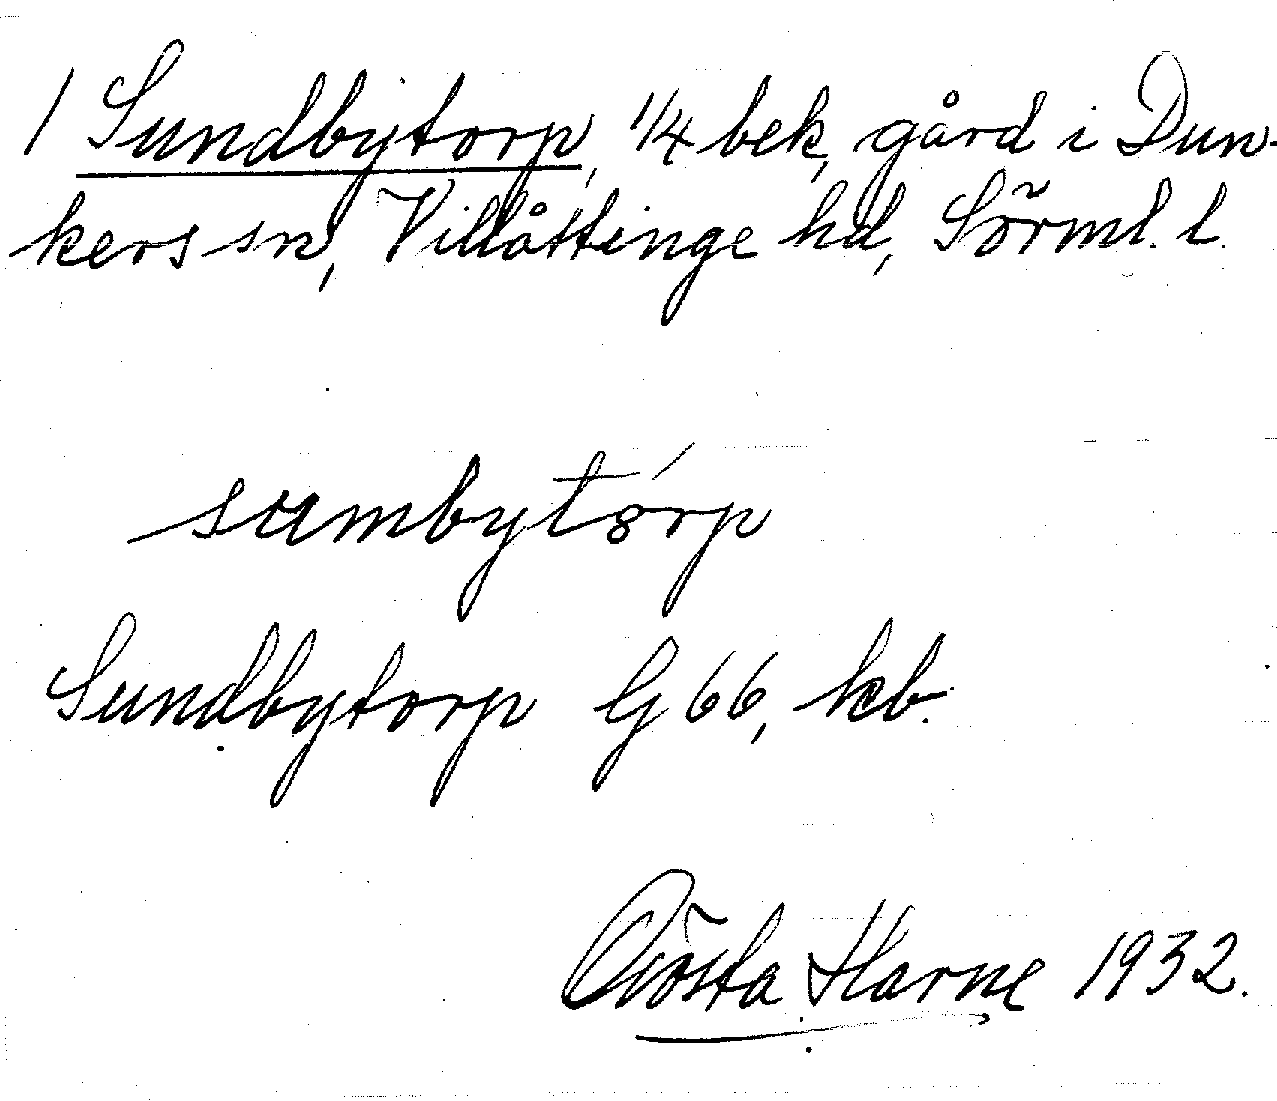 1 Sundbytorp, 1/4 bek, gård i Dun-
kers sn, Villåttinge hd, Sörml. l.
sumbytórp
Sundbytorp G 66, kb.
Gösta Harne 1932.